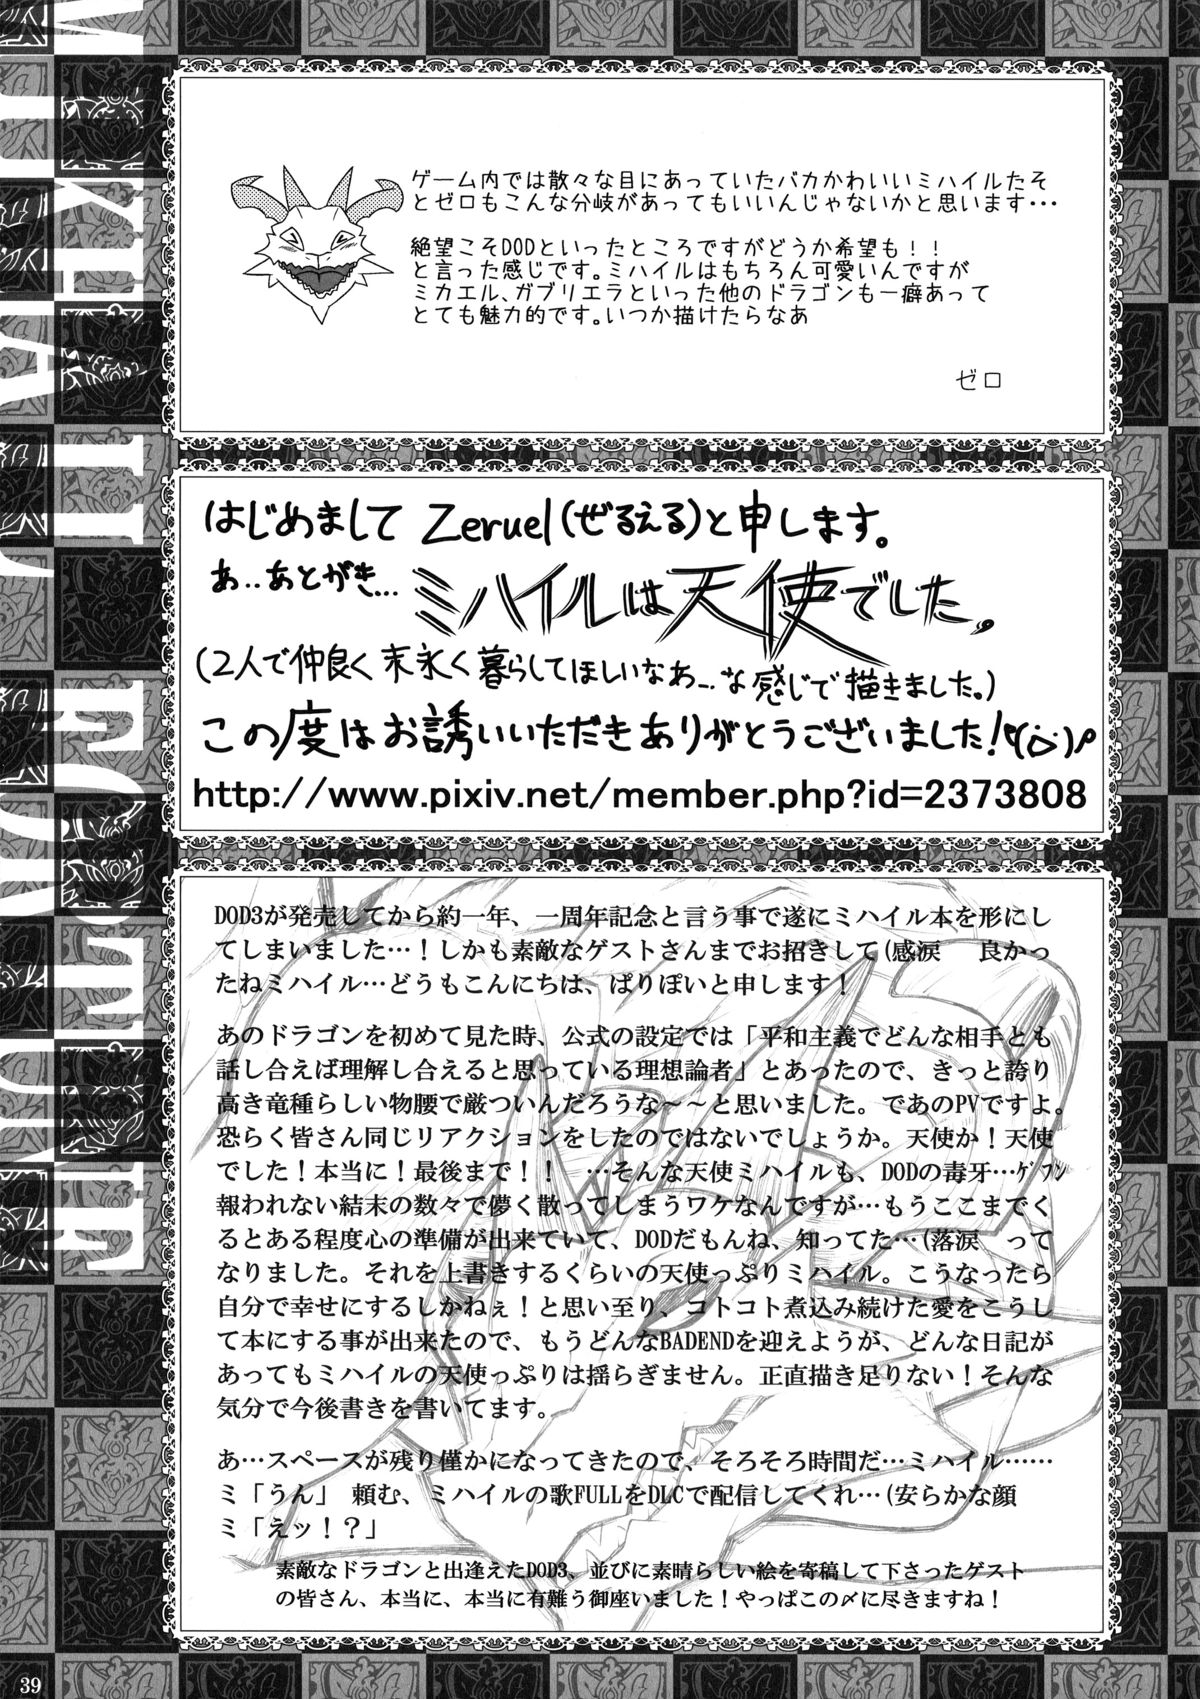 ゲーム内では散々な目にあっていたバカかわいいミハイルたそ
とゼロもこんな分岐があってもいいんじゃないかと思います・・・
絶望こそDODといったところですがどうか希望も！！
と言った感じです。ミハイルはもちろん可愛いんですが
ミカエル、ガブリエラといった他のドラゴンも一癖あって
とても魅力的です。いつか描けたらなあ
ゼロ
はじめまして Zeruel(ぜるえる)と申します。
あ..あとがき... ミハイルは天使でした。
(2人で仲良く末永く暮らしてほしいなぁ…な感じで描きました。)
この度はお誘いいただきありがとうございました！
http://www.pixiv.net/member.php?id=2373808
DOD3が発売してから約一年、一周年記念と言う事で遂にミハイル本を形にし
てしまいました…！しかも素敵なゲストさんまでお招きして(感涙　良かっ
たねミハイル…どうもこんにちは、ぱりぽいと申します！
あのドラゴンを初めて見た時、公式の設定では「平和主義でどんな相手とも
話し合えば理解し合えると思っている理想論者」とあったので、きっと誇り
高き竜種らしい物腰で厳ついんだろうな～～と思いました。であのPVですよ。
恐らく皆さん同じリアクションをしたのではないでしょうか。天使か！天使
でした！本当に！最後まで！！　…そんな天使ミハイルも、DODの毒牙…ｹﾞﾌﾝ
報われない結末の数々で儚く散ってしまうワケなんですが…もうここまでく
るとある程度心の準備が出来ていて、DODだもんね、知ってた…(落涙　って
なりました。それを上書きするくらいの天使っぷりミハイル。こうなったら
自分で幸せにするしかねぇ！と思い至り、コトコト煮込み続けた愛をこうし
て本にする事が出来たので、もうどんなBADENDを迎えようが、どんな日記が
あってもミハイルの天使っぷりは揺らぎません。正直描き足りない！そんな
気分で今後書きを書いてます。
あ…スペースが残り僅かになってきたので、そろそろ時間だ…ミハイル……
ミ「うん」　頼む、ミハイルの歌FULLをDLCで配信してくれ…(安らかな顔
ミ「えッ！？」
素敵なドラゴンと出逢えたDOD3、並びに素晴らしい絵を寄稿して下さったゲスト
の皆さん、本当に、本当に有難う御座いました！やっぱこの〆に尽きますね！
39